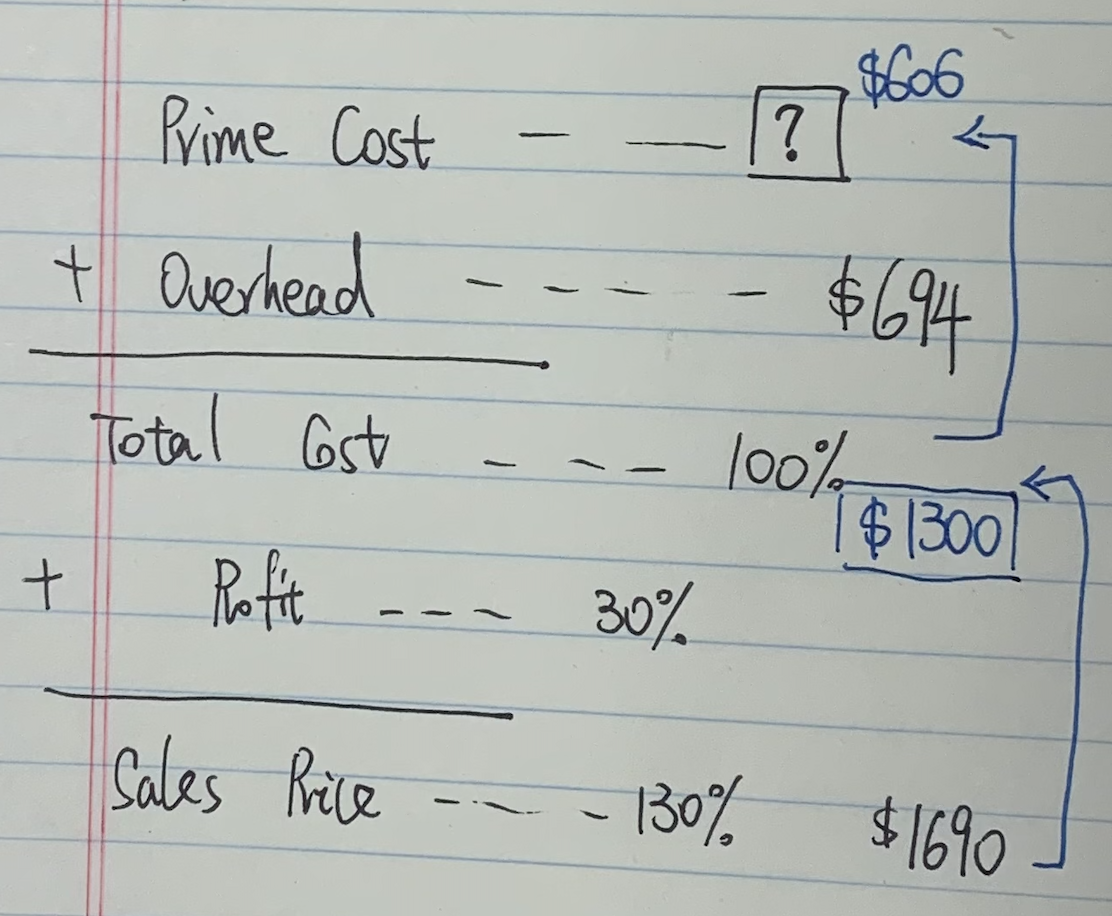 $606
Prime Cost - - ?
+ Overhead - - - - - $694
Total Cost - - - 100%
$1300
+ Profit - - - 30%
Sales Price - - - - 130% $1690